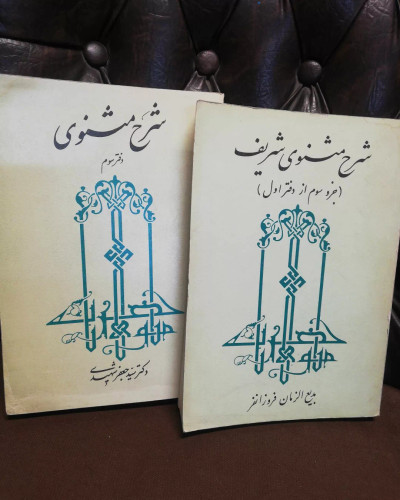 شرح مثنوی
دفتر سوم
دکتر سید جعفر شهیدی
شرح مثنوی شریف
(جزو سوم از دفتر اول)
بدیع الزمان فروزانفر